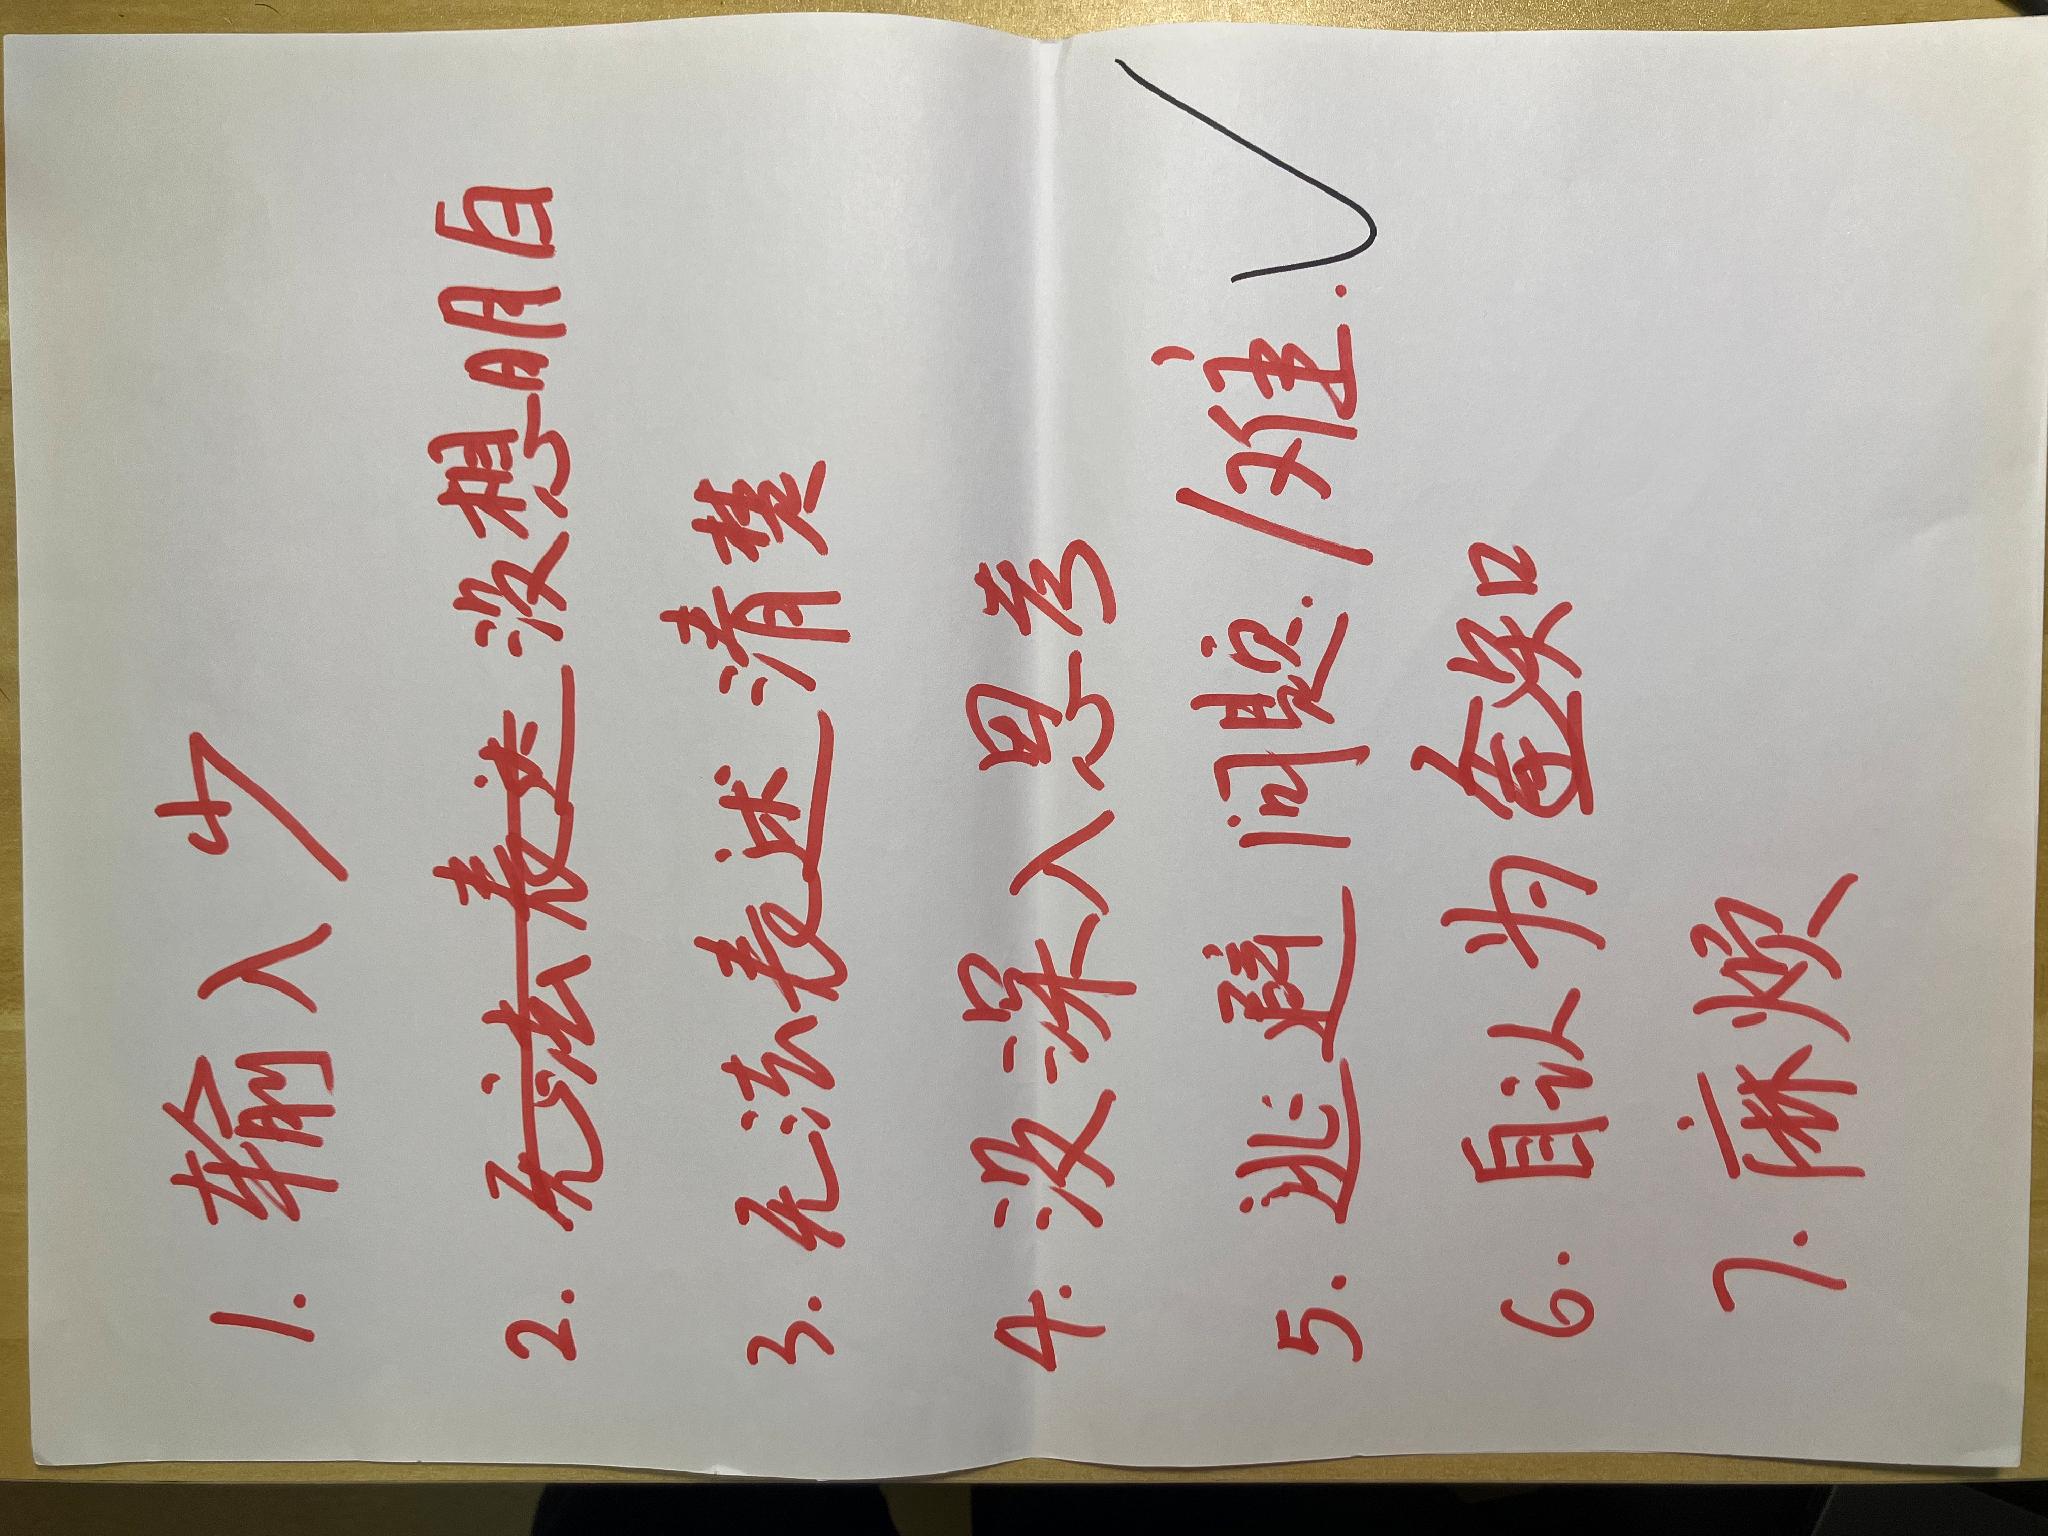 1. 输入少
2. 无法表达 没想明白
3. 无法表述清楚
4. 没深入思考
5. 逃避问题. /难.
6. 自认为
7. 麻烦